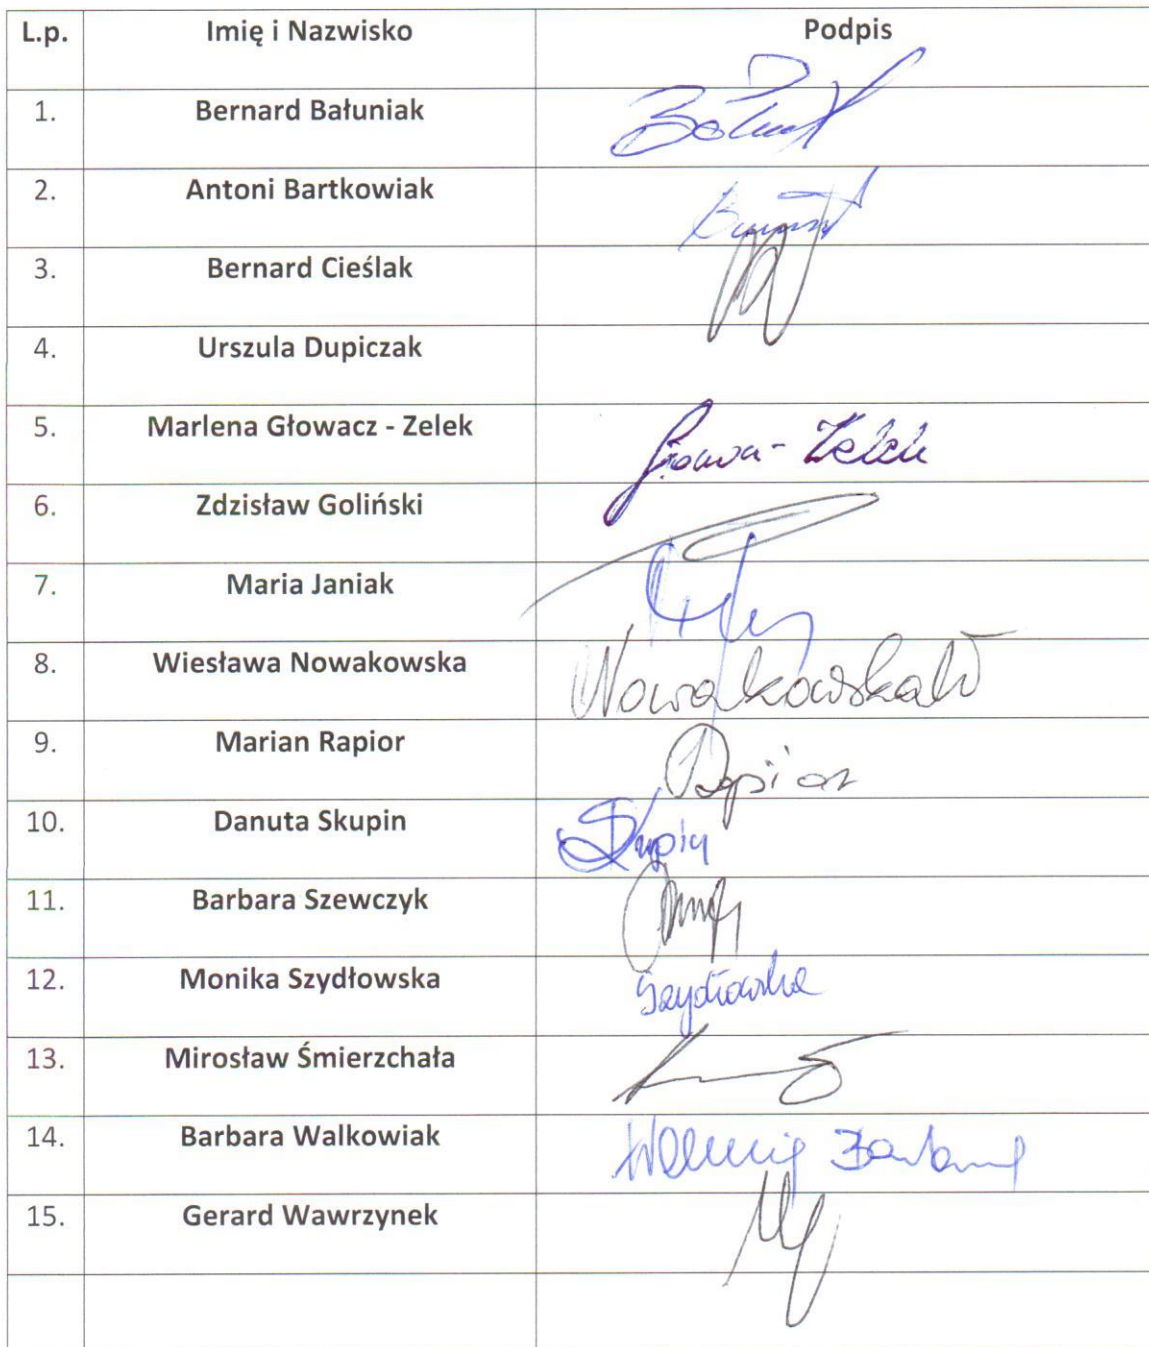 L.p. Imię i Nazwisko Podpis
1. Bernard Bałuniak
2. Antoni Bartkowiak
3. Bernard Cieślak
4. Urszula Dupiczak
5. Marlena Głowacz - Zelek
6. Zdzisław Goliński
7. Maria Janiak
8. Wiesława Nowakowska Nowakowska W
9. Marian Rapior Rapior
10. Danuta Skupin Skupin
11. Barbara Szewczyk
12. Monika Szydłowska Szydłowska
13. Mirosław Śmierzchała
14. Barbara Walkowiak
15. Gerard Wawrzynek